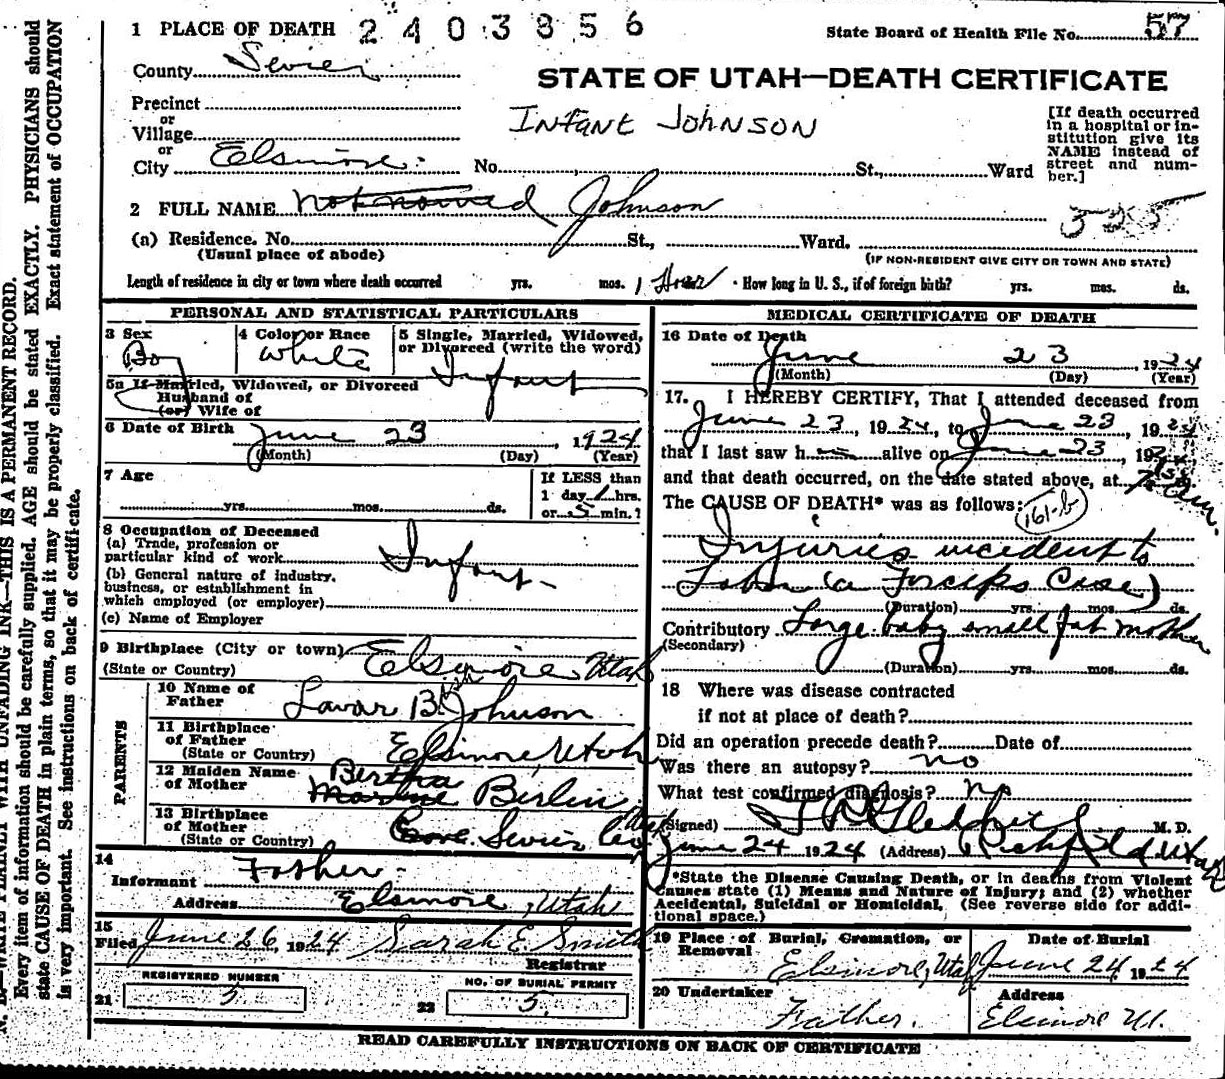 1 PLACE OF DEATH 2403856
State Board of Health File No. 57
County Sevier
STATE OF UTAH—DEATH CERTIFICATE
Precinct
or
Village
or
City Elsinore
INFANT JOHNSON
[If death occurred
in a hospital or in-
stitution give its
NAME instead of
street and num-
ber.]
No. St., Ward
2 FULL NAME not named Johnson
(a) Residence. No. St., Ward.
(Usual place of abode)
(IF NON-RESIDENT GIVE CITY OR TOWN AND STATE)
Length of residence in city or town where death occurred yrs. mos. 1 Hour How long in U. S., if of foreign birth? yrs. mos. ds.
PERSONAL AND STATISTICAL PARTICULARS
3 Sex
Boy
4 Color or Race
White
5 Single, Married, Widowed,
or Divorced (write the word)
Infant
5a If Married, Widowed, or Divorced
Husband of
(or) Wife of
6 Date of Birth June 23, 1924
(Month) (Day) (Year)
7 Age
yrs. mos. ds.
If LESS than
1 day 1 hrs.
or 5 min.?
8 Occupation of Deceased
(a) Trade, profession or
particular kind of work Infant
(b) General nature of industry,
business, or establishment in
which employed (or employer)
(c) Name of Employer
9 Birthplace (City or town) Elsinore Utah
(State or Country)
PARENTS
10 Name of
Father Lavar B. Johnson
11 Birthplace
of Father
(State or Country) Elsinore, Utah
12 Maiden Name
of Mother Bertha Maxine Berlin
13 Birthplace
of Mother
(State or Country) Cove. Sevier Co Utah
14
Informant Father
Address Elsinore, Utah
15
Filed June 26, 1924 Sarah E. Smith
Registrar
REGISTERED NUMBER
21 5
NO. OF BURIAL PERMIT
22 5
MEDICAL CERTIFICATE OF DEATH
16 Date of Death
June 23, 1924
(Month) (Day) (Year)
17. I HEREBY CERTIFY, That I attended deceased from
June 23, 1924, to June 23, 1924
that I last saw h alive on June 23, 1924
and that death occurred, on the date stated above, at 7 am.
The CAUSE OF DEATH* was as follows: 161-b
Injuries incident to
Labor (a Forceps Case)
(Duration) yrs. mos. ds.
Contributory Large baby small fat mother
(Secondary)
(Duration) yrs. mos. ds.
18 Where was disease contracted
if not at place of death?
Did an operation precede death? Date of
Was there an autopsy? no
What test confirmed diagnosis? no
(Signed) M. D.
June 24 1924 (Address) Richfield, Utah
*State the Disease Causing Death, or in deaths from Violent
Causes state (1) Means and Nature of Injury; and (2) whether
Accidental, Suicidal or Homicidal. (See reverse side for addi-
tional space.)
19 Place of Burial, Cremation, or
Removal
Elsinore, Utah
Date of Burial
June 24 1924
20 Undertaker
Father.
Address
Elsinore Ut.
READ CAREFULLY INSTRUCTIONS ON BACK OF CERTIFICATE
N. B.—WRITE PLAINLY WITH UNFADING INK—THIS IS A PERMANENT RECORD.
Every item of information should be carefully supplied. AGE should be stated EXACTLY. PHYSICIANS should
state CAUSE OF DEATH in plain terms, so that it may be properly classified. Exact statement of OCCUPATION
is very important. See instructions on back of certificate.